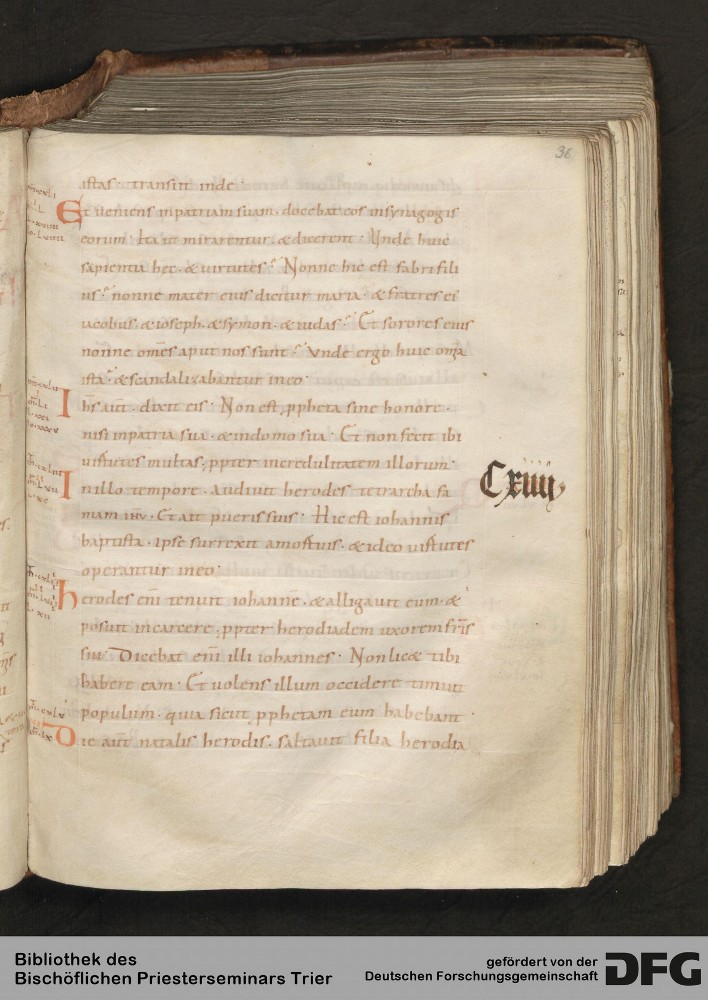 36
istas · transiit inde ·
Et veniens inpatriam suam · docebat eos insynagogis
eorum · Ita ut mirarentur · & dicerent · Unde huic
sapientia hec · & uirtutes? Nonne hic est fabri fili
us? nonne mater eius dicitur maria · & fratres ei'
iacobus · & ioseph · & symon · & iudas? Et sorores eius
nonne om̄s aput nos sunt? Vnde ergo huic om̄ia
ista? & scandalizabantur ineo ·
Ih̄s aut̄ · dixit eis · Non est ꝓpheta sine honore ·
nisi inpatria sua · & indomo sua · Et non fecit ibi
uirtutes multas · ꝓpter incredulitatem illorum ·
In illo tempore · audiuit herodes tetrarcha fa
mam ih̄u · Et ait pueris suis · Hic est iohannis
baptista · ipse surrexit amortuis · & ideo uirtutes
operantur ineo ·
herodes eni̅ tenuit iohanne̅ · & alligauit eum · &
posuit incarcere · ꝓpter herodiadem uxorem fr̄is
sui · Dicebat eni̅ illi iohannes · Non lic& tibi
habere eam · Et uolens illum occidere timuit
populum · quia sicut ꝓphetam eum habebant ·
Die aut̄ natalis herodis · saltauit filia herodia
Cxiiij
Bibliothek des
Bischöflichen Priesterseminars Trier
gefördert von der
Deutschen Forschungsgemeinschaft
DFG